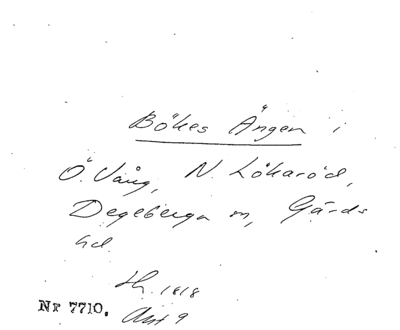 Bökes Ången i
Ö. Vång, N. Lökaröd,
Degeberga sn, Gärds
hd.
1818
Nr 7710. Akt 9